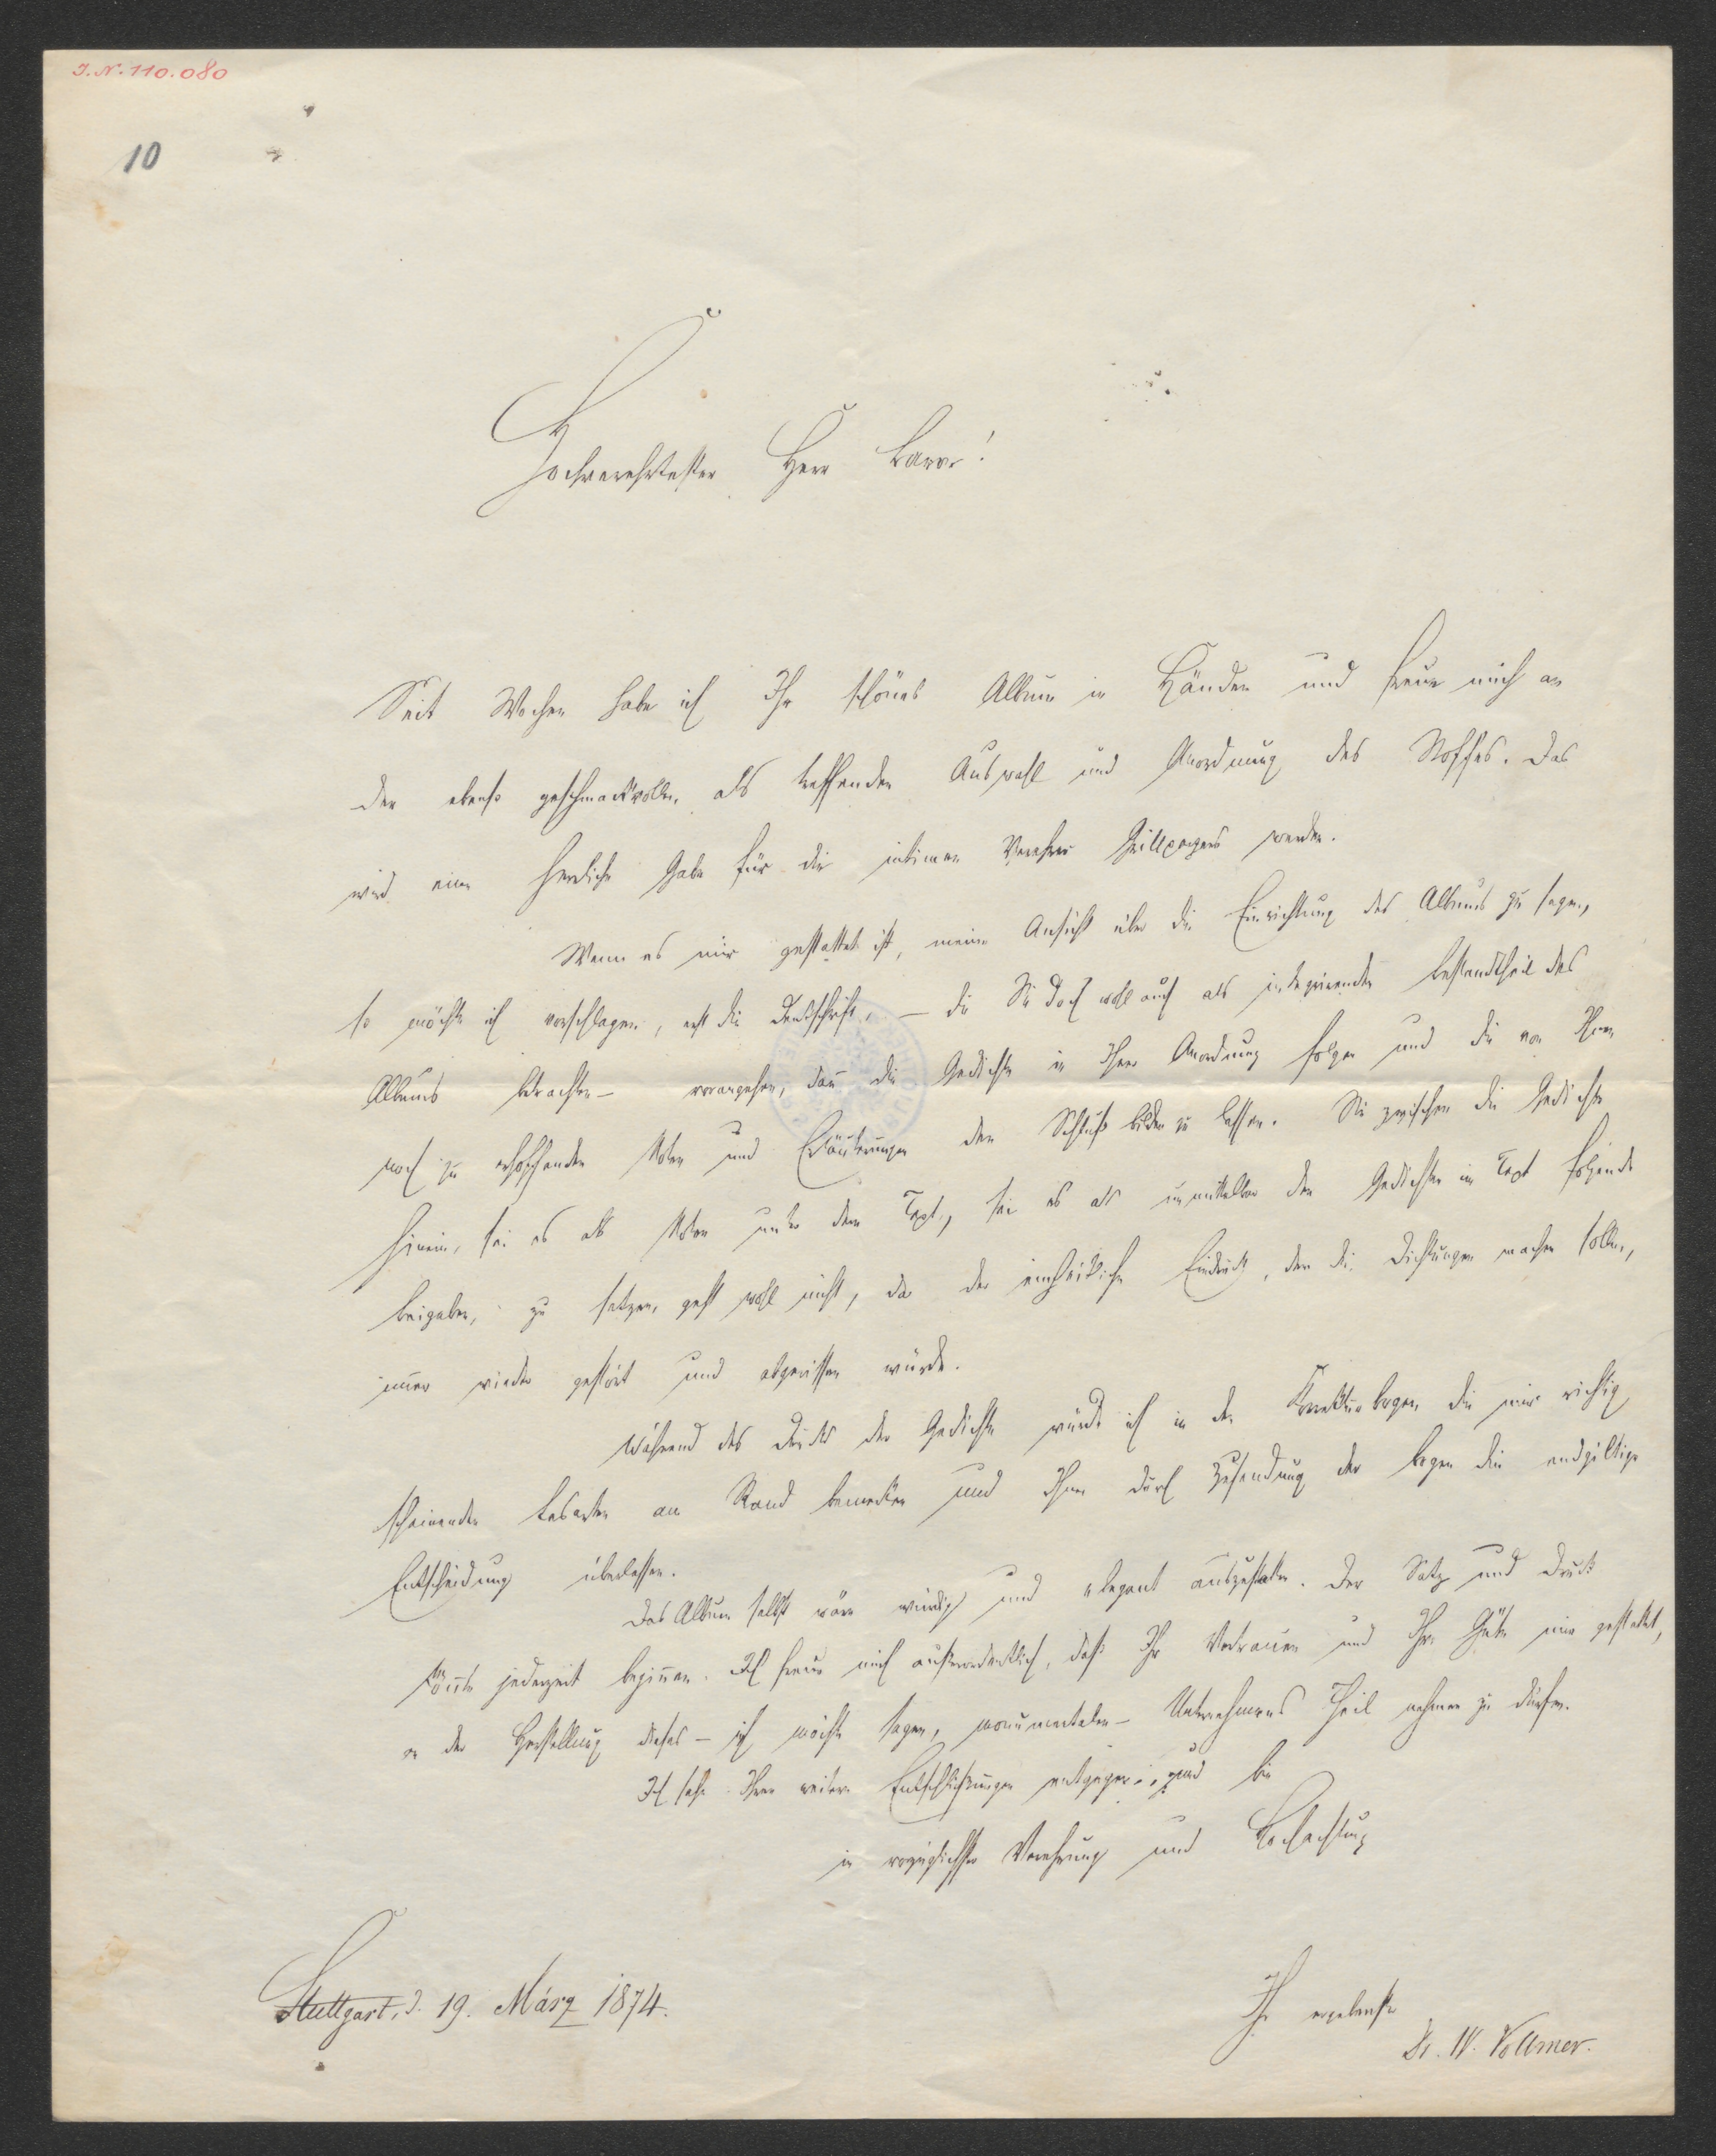 I. N. 110.080
10
Hochverehrtester Herr Baron!
Seit Wochen habe ich Ihr schönes Album in Händen und freue mich an
der ebenso geschmackvollen als treffenden Auswahl und Anordnung des Stoffes. Das
wird eine herrliche Gabe für die intimen Verehrer Grillparzers werden.
Wenn es mir gestattet ist, meine Ansicht über die Einrichtung des Albums zu sagen,
so möchte ich vorschlagen, erst die Denkschrift, – die Sie doch wohl auch als integrirenden Bestandtheil des
Albums betrachten – vorangehen, dann die Gedichte in Ihrer Anordnung folgen und die von Ihnen
noch zu erhoffenden Noten und Erläuterungen den Schluß bilden zu lassen. Sie zwischen die Gedichte
hinein, sei es als Noten unter dem Text, sei es als unmittelbar den Gedichten im Text folgende
Beigaben, zu setzen, geht wohl nicht, da der einheitliche Eindruck, den die Dichtungen machen sollen,
immer wieder gestört und abgerissen würde.
Während des Drucks der Gedichte würde ich in den Korrekturbogen die mir richtig
scheinenden Lesarten am Rand bemerken und Ihnen durch Zusendung der Bogen die endgiltige
Entscheidung überlassen.
Das Album selbst wäre würdig und elegant auszustatten. Der Satz und Druck
könnte jederzeit beginnen. Ich freue mich außerordentlich, daß Ihr Vertrauen und Ihre Güte mir gestattet,
an der Herstellung dieses – ich möchte sagen, monumentalen – Unternehmens Theil nehmen zu dürfen.
Ich sehe Ihren weitern Entschließungen entgegen und bin
in vorzüglichster Verehrung und Hochachtung
Stuttgart, d. 19. März 1874.
Ihr ergebenster
Dr. W. Vollmer.